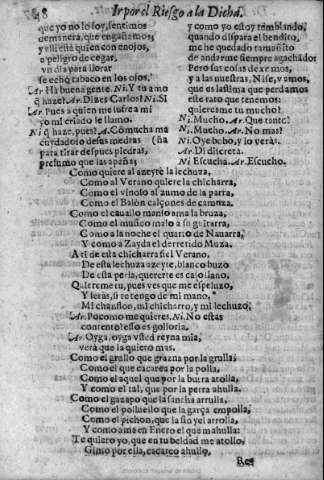 48 Ir por el Riesgo a la Dicha.
que yo no lo soy, sentimos
demanera, que engañamos,
y allí está quien con enojos,
a peligro de cegar,
vn dia para llorar
se echò tabaco en los ojos.
Ar. Ha buena gente. Ni. Y tu amo
q̃ haze? Ar. Dizes Carlos? Ni. Si
Ar. Pues a quien me sufra a mi
yo mi criado le llamo.
Ni q̃ haze, pues? A. Cõ mucha ma
cuydadoso de sus piedras, (ña
para tirar despues piedras,
presumo que las apañas
y como yo estoy temblando,
quando dispara el bendito,
me he quedado tamañito
de andarme siempre agachãdo
Pero las cosas dexar mos,
y a las nuestras, Nise, vamos,
que es lastima que perdamos
este rato que tenemos:
quieresme tu mucho?
Ni. Mucho. Ar. Que tanto?
Ni. Mucho. Ar. No mas?
Ni. Oye bobo, y lo veràs.
Ar. Di discreta.
Ni Escucha. Ar. Escucho.
Como quiere al azeyte la lechuza,
Como al Verano quiere la chicharra,
Como el viñedo al zumo de la parra,
Como el Balòn calçones de camuza.
Como el cauallo manso ama la bruza,
Como el musico malo a su guitarra,
Como a la noche el quarto de Nauarra,
Y como a Zayda el derretido Muza.
Asi de esta chicharra fiel Verano,
De esta lechuza azeyte, blanco buzo
De esta perla, quererte es caso llano,
Quiereme tu, pues ves que me espeluzo,
Y seràs, si te tengo de mi mano,
Mi chanflon, mi chicharro, y mi lechuzo,
Ar. Po como me quieres. Ni. No estàs
contento? esso es golloria.
Ar. Oyga, oyga vsted reyna mia,
verà que la quiero mas.
Como el grallo que grazna por la grulla,
Como el que cacarea por la polla,
Como el aquel que por la burra atolla,
Y como el tal, que por la perra ahulla.
Como el gazapo que la sancha arrulla,
Como el polluelo que la garça empolla,
Como el pichon, que la sin yel arrolla,
Y como ama en Enero el que mahulla:
Te quiero yo, que en tu beldad me atollo,
Gimo por ella, cacareo ahullo,
Res
Biblioteca Nacional de España